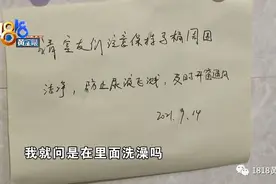 1818
黄金眼
请室友们注意保持子槅周围
洁净,防止尿液飞溅,及时开窗通风
2021.9.14
我就问是在里面洗澡吗
1818黄